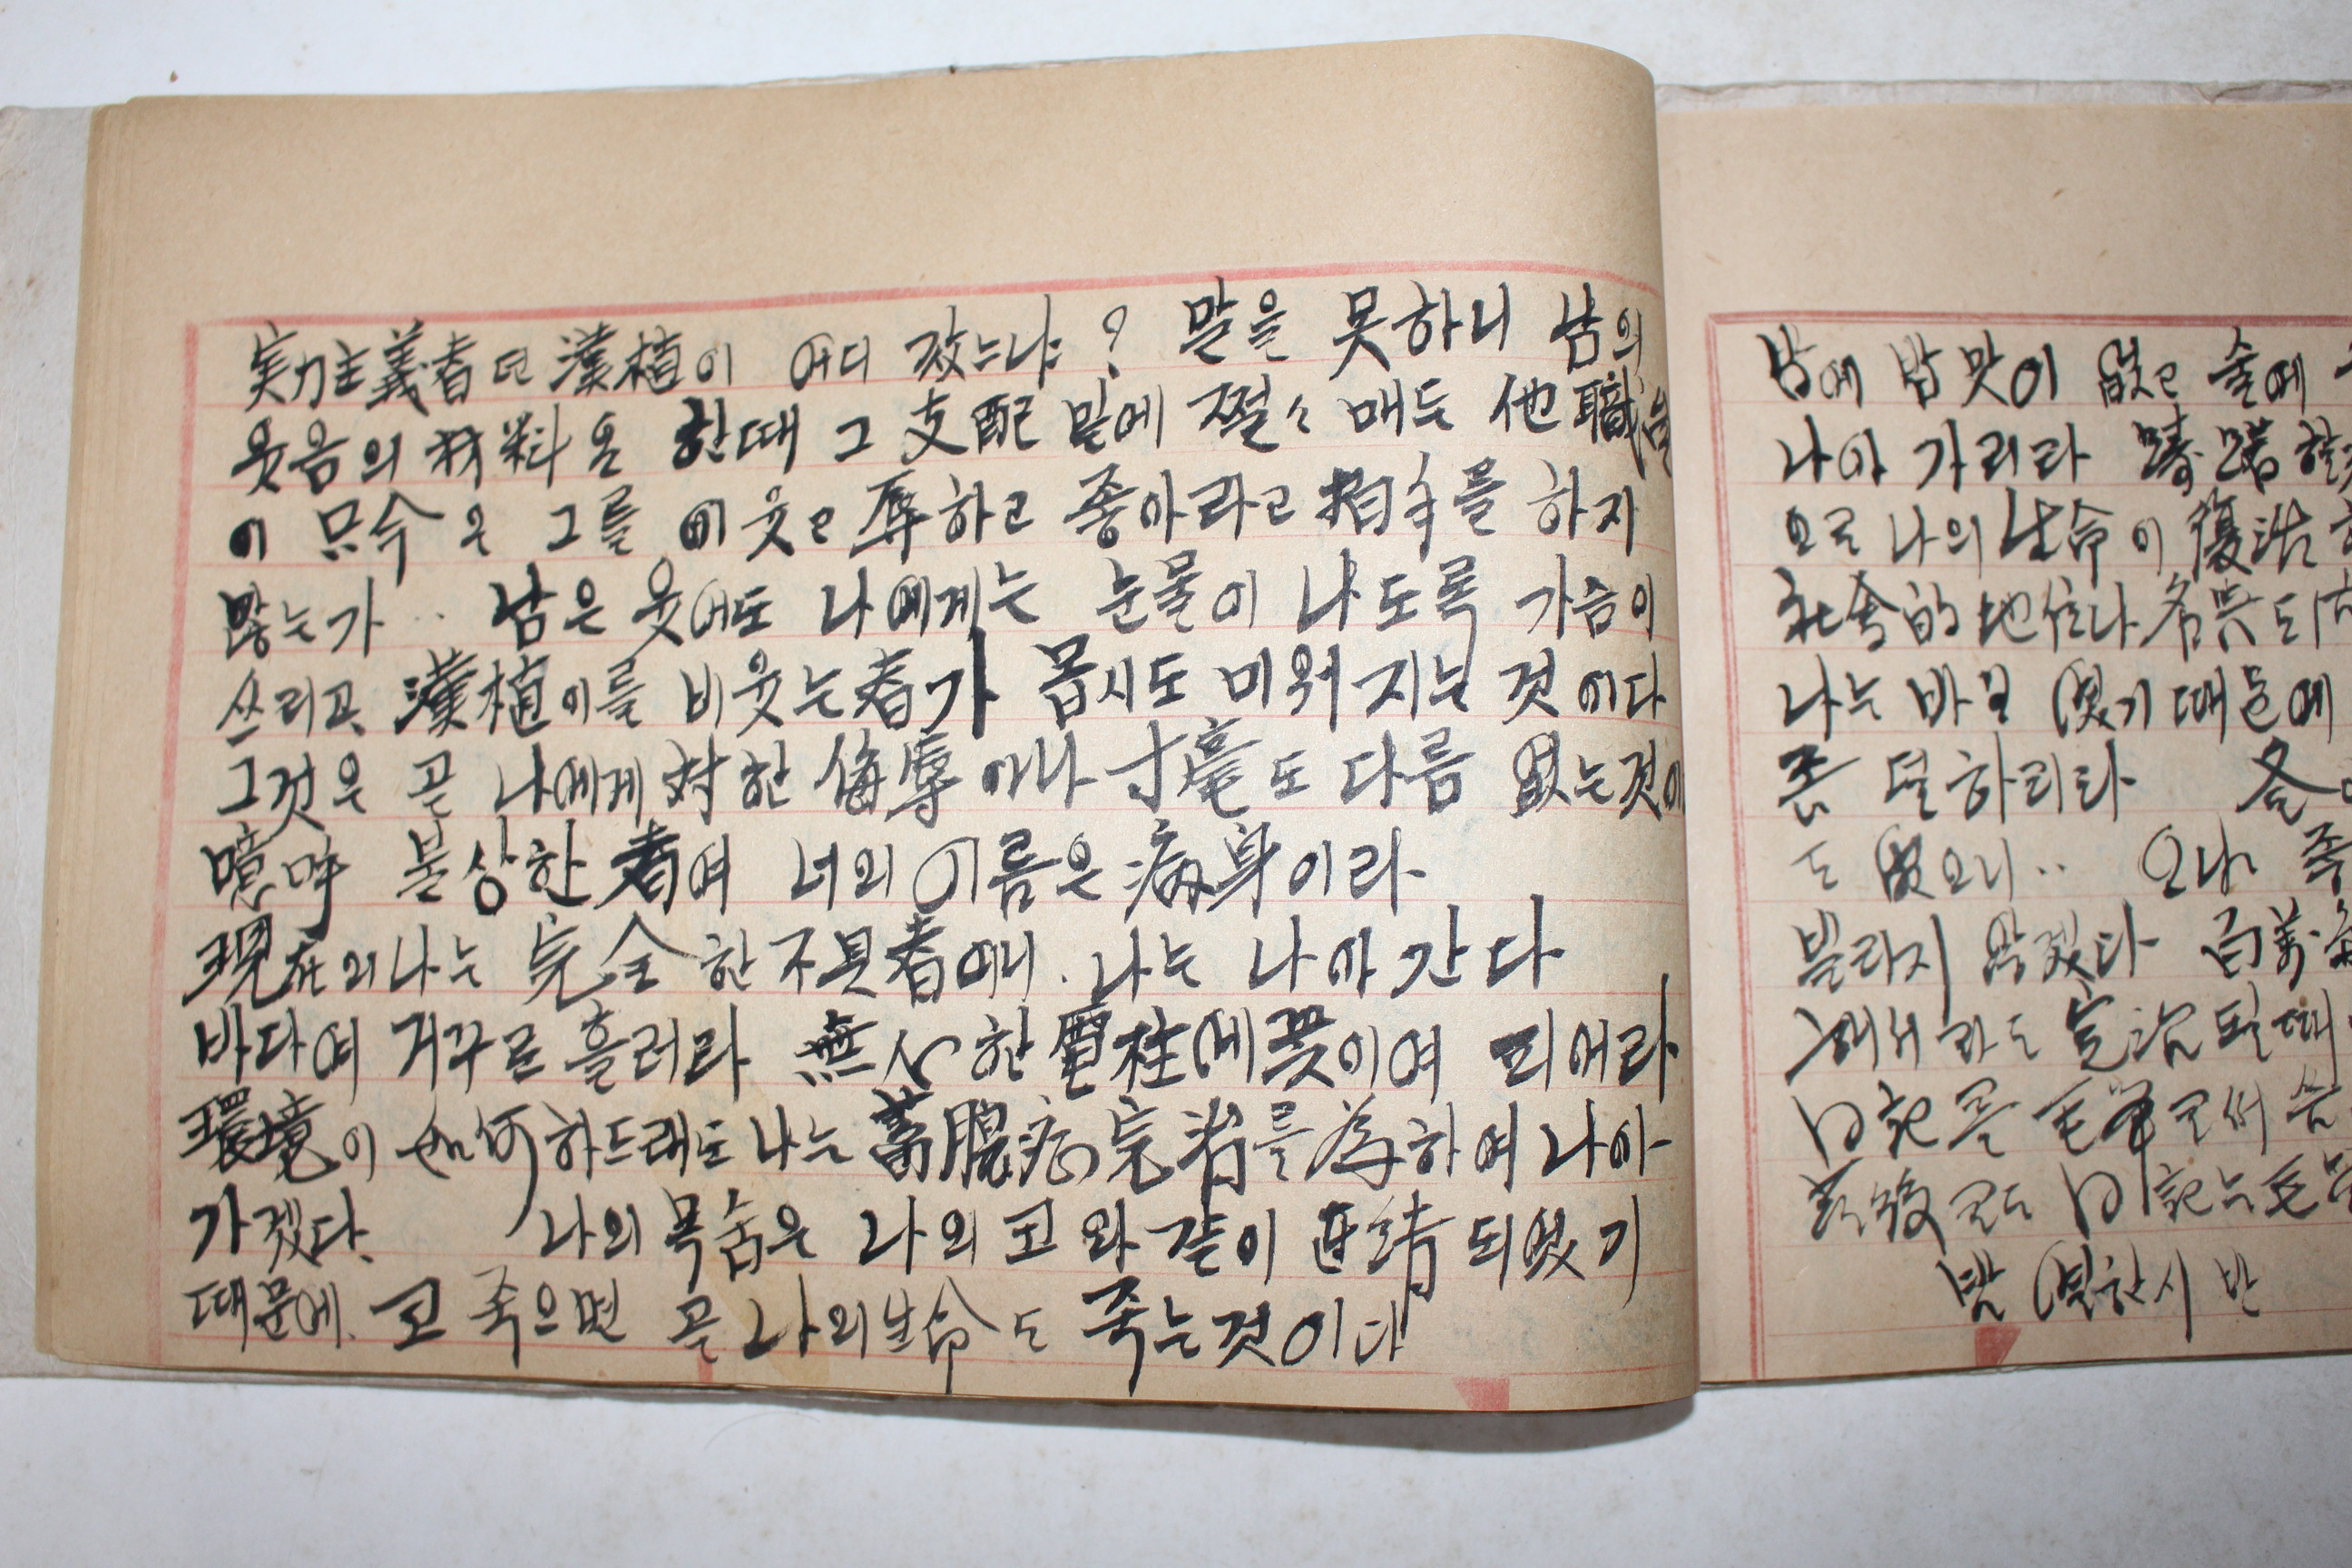 実力主義者던 漢植이 어디 갔느냐? 말을 못하니 남의
웃음의 材料온 한때 그 支配 밑에 쩔々 매든 他職
이 只今은 그를 비웃고 辱하고 좋아라고 拍手를 하지
않는가.. 남은 웃어도 나에게는 눈물이 나도록 가슴이
쓰리고 漢植이를 비웃는者가 몹시도 미워지는 것이다
그것은 곧 나에게 対한 侮辱이나 寸毫도 다름 없는것이
噫呼 불상한 者여 너의 이름은 病身이라
現在의 나는 完全한 不具者에니. 나는 나아간다
바다여 거꾸로 흘러라 無心한 電柱에 꽃이여 피어라
環境이 如何하드래도 나는 蓄膿症 完治를 為하여 나아
가겠다. 나의 목숨은 나의 코와 같이 連結되였기
때문에. 코 죽으면 곧 나의 生命도 죽는것이다
밥에 밥맛이 없고 술에
나아가리라 躊躇할
으로 나의 生命이 復活
社會的 地位나 名誉도
나는 바보 였기 때문에
덜하리라 冬
도 없으니.. 오냐
블라지 않겠다 百萬
해서라도 完治될때
日記을 毛筆로써
日記는 毛
밤 열한시 반